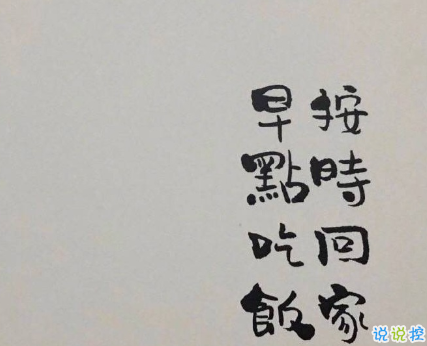 按時回家
早點吃飯
说说控